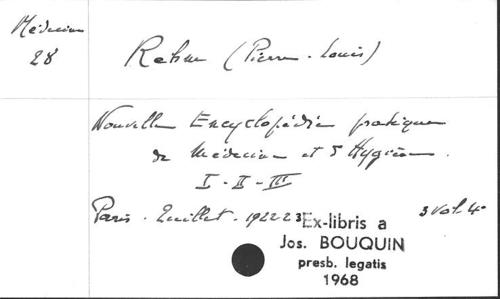 Médecine
28
Rehm (Pierre-Louis)
Nouvelle Encyclopédie pratique
de Médecine et d'Hygiène.
I-II-III
Paris. Quillet. 1922-23
3 Vol. 4°
Ex-libris a
Jos. BOUQUIN
presb. legatis
1968